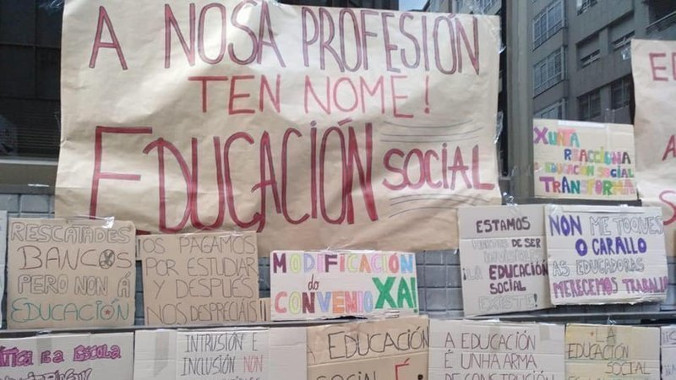 A NOSA PROFESIÓN
TEN NOME!
EDUCACIÓN SOCIAL
XUNTA
REACCIONA
EDUCACIÓN SOCIAL
TRANSFORMA
RESCATADES
BANCOS
PERO NON Á
EDUCACIÓN
OS PAGAMOS
POR ESTUDIAR
Y DESPUÉS
NOS DESPRECIÁIS
MODIFICACIÓN
do
CONVENIO XA!
ESTAMOS
DE SER
¡LA EDUCACIÓN
SOCIAL
EXISTE!
NON ME TOQUES
O CARALLO
AS EDUCADORAS
MERECEMOS TRABALLO
É A ESCOLA
INTRUSIÓN E
INCLUSIÓN NON
EDUCACIÓN
SOCIAL É
A EDUCACIÓN
É UNHA ARMA
DE CONSTITUCIÓN
LA
EDUCACIÓN
SOCIAL